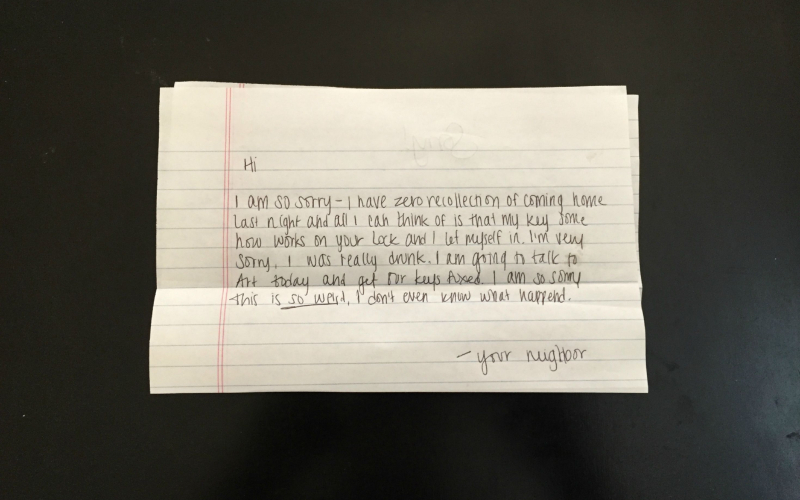 Hi
I am so sorry - I have zero recollection of coming home
last night and all I can think of is that my key some
how works on your lock and I let myself in. I'm very
sorry, I was really drunk. I am going to talk to
Art today and get our keys fixed. I am so sorry
this is so weird, I don't even know what happend.
- your neighbor